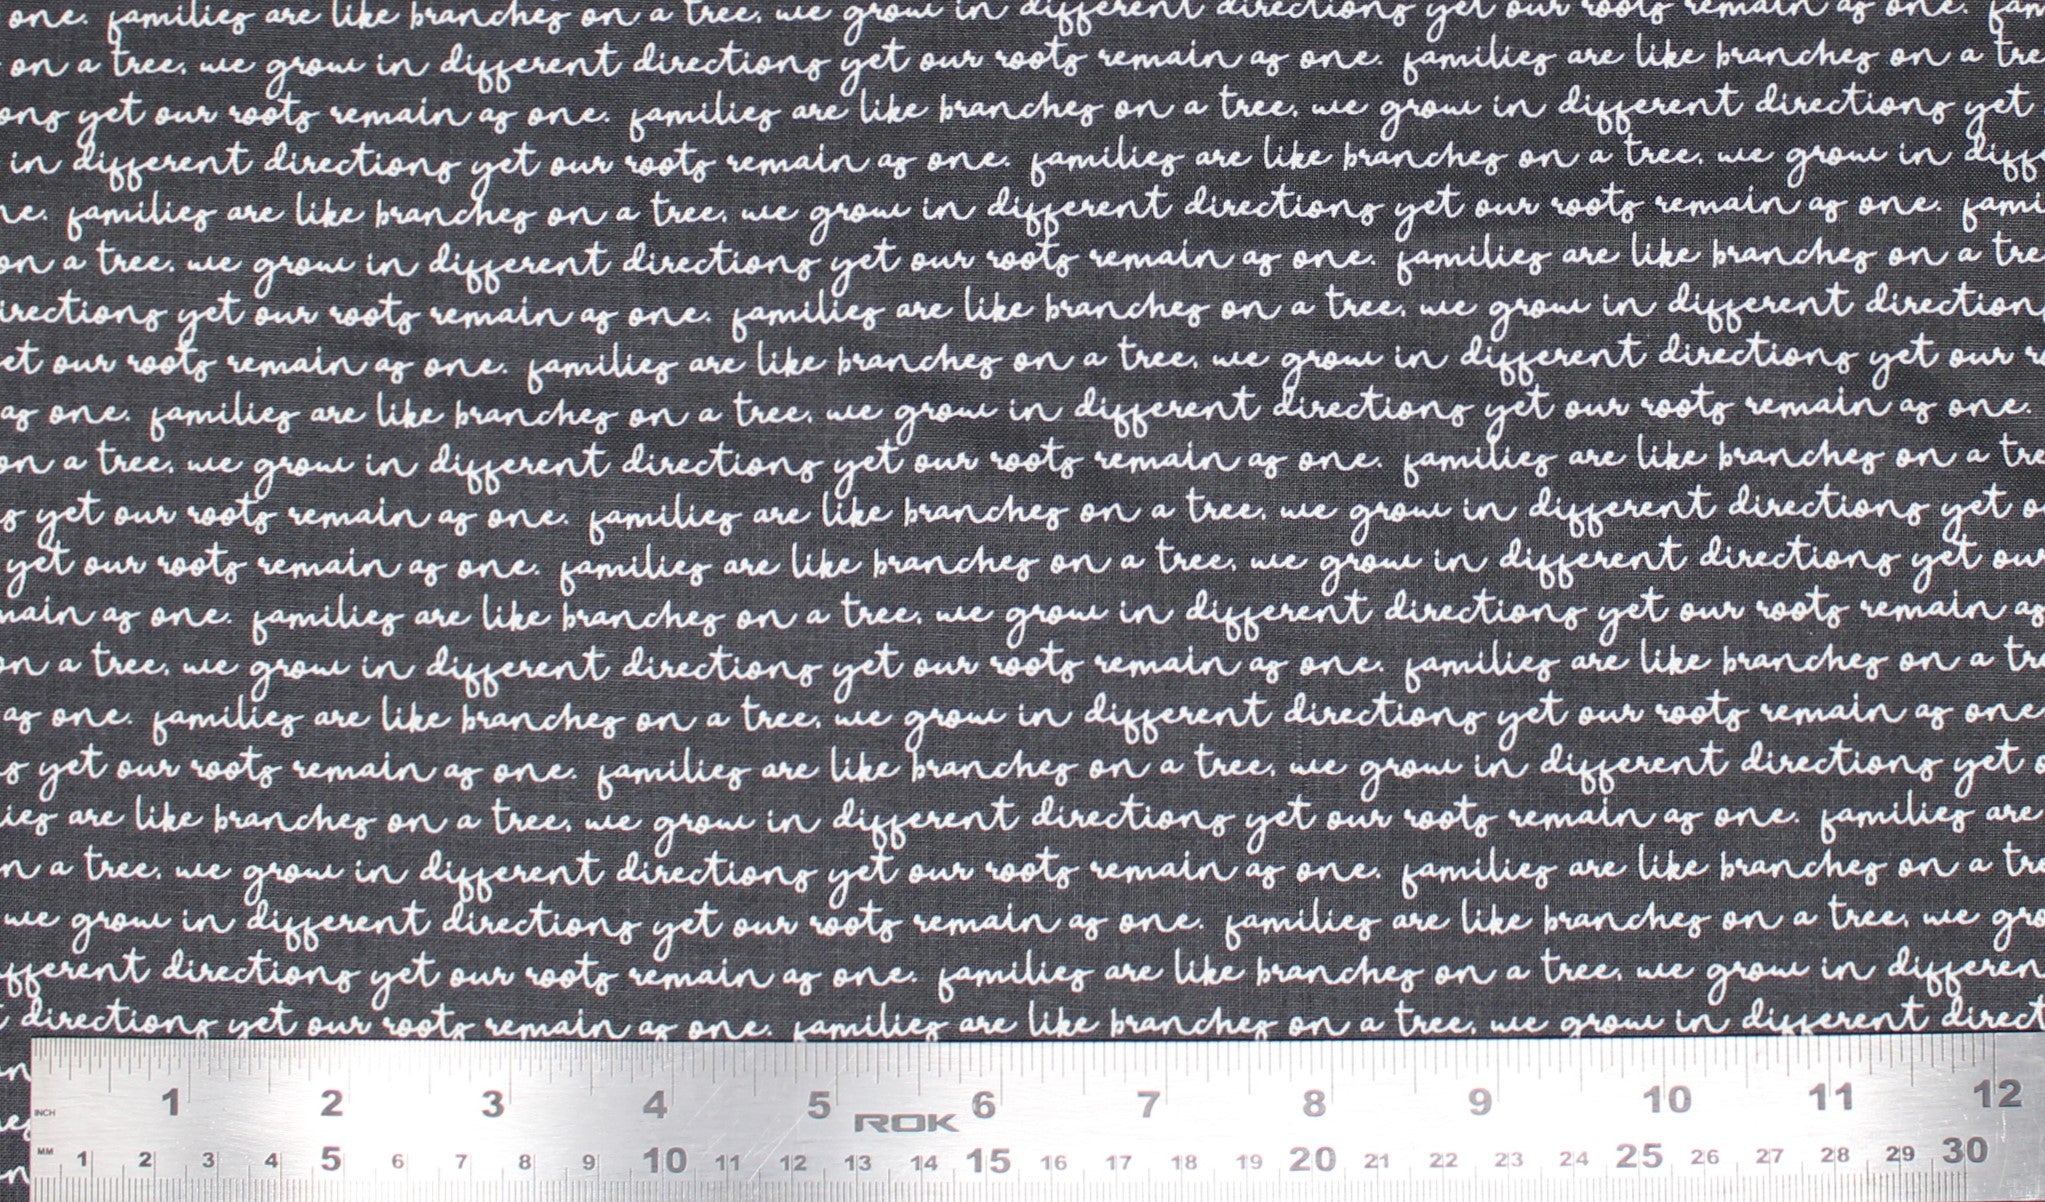 one. families are like branches on a tree. we grow in different directions yet our roots remain as one. fam
on a tree. we grow in different directions yet our roots remain as one. families are like branches on a tre
ons yet our roots remain as one. families are like branches on a tree. we grow in different directions yet
in different directions yet our roots remain as one. families are like branches on a tree. we grow in diffe
ne. families are like branches on a tree. we grow in different directions yet our roots remain as one. fami
on a tree. we grow in different directions yet our roots remain as one. families are like branches on a tre
irections yet our roots remain as one. families are like branches on a tree. we grow in different direction
et our roots remain as one. families are like branches on a tree. we grow in different directions yet our r
as one. families are like branches on a tree. we grow in different directions yet our roots remain as one.
on a tree. we grow in different directions yet our roots remain as one. families are like branches on a tre
s yet our roots remain as one. families are like branches on a tree. we grow in different directions yet o
yet our roots remain as one. families are like branches on a tree. we grow in different directions yet our
main as one. families are like branches on a tree. we grow in different directions yet our roots remain as
on a tree. we grow in different directions yet our roots remain as one. families are like branches on a tre
as one. families are like branches on a tree. we grow in different directions yet our roots remain as one
s yet our roots remain as one. families are like branches on a tree. we grow in different directions yet o
ies are like branches on a tree. we grow in different directions yet our roots remain as one. families are
n a tree. we grow in different directions yet our roots remain as one. families are like branches on a tre
we grow in different directions yet our roots remain as one. families are like branches on a tree. we gro
fferent directions yet our roots remain as one. families are like branches on a tree. we grow in differen
t directions yet our roots remain as one. families are like branches on a tree. we grow in different direct
1 2 3 4 5 6 7 8 9 10 11 12
INCH ROK
MM 1 2 3 4 5 6 7 8 9 10 11 12 13 14 15 16 17 18 19 20 21 22 23 24 25 26 27 28 29 30